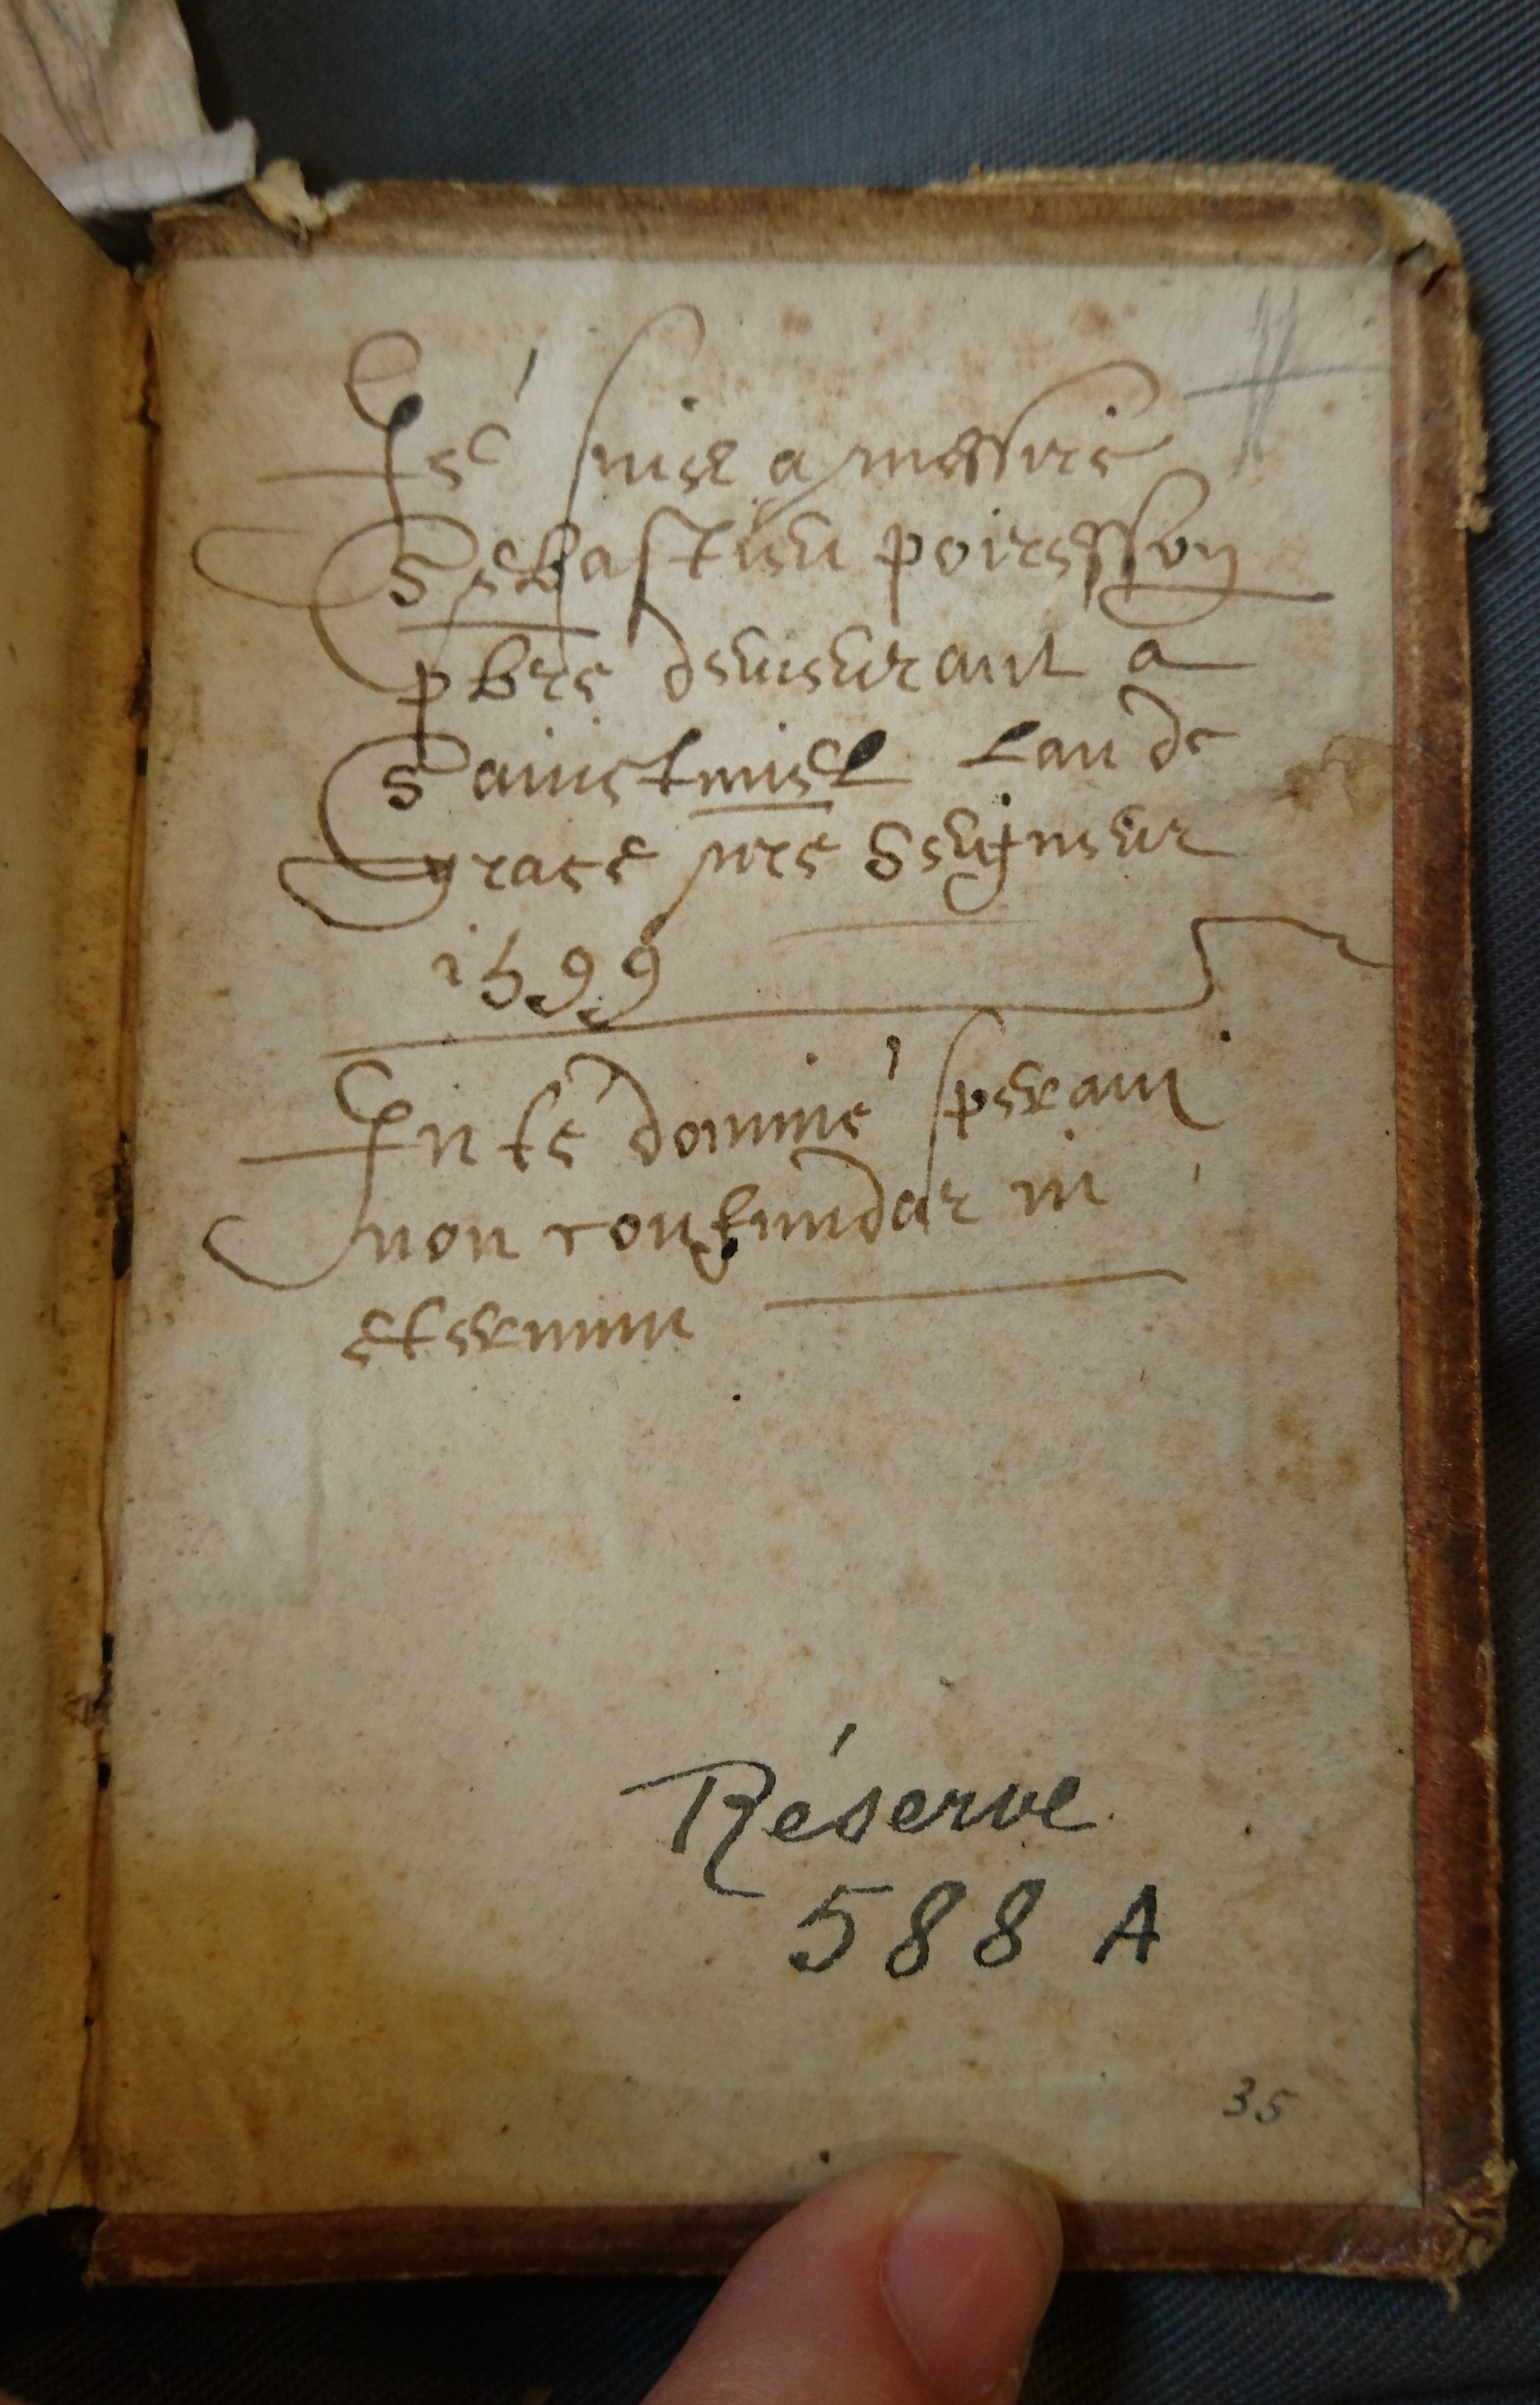 Je suis a messire
Sebastien poiresson
pbre demeurant a
Sainctmiel Lan de
Grace nre Seigneur
1599
In te domine speraui
non confundar in
eternum
Réserve
588 A
35